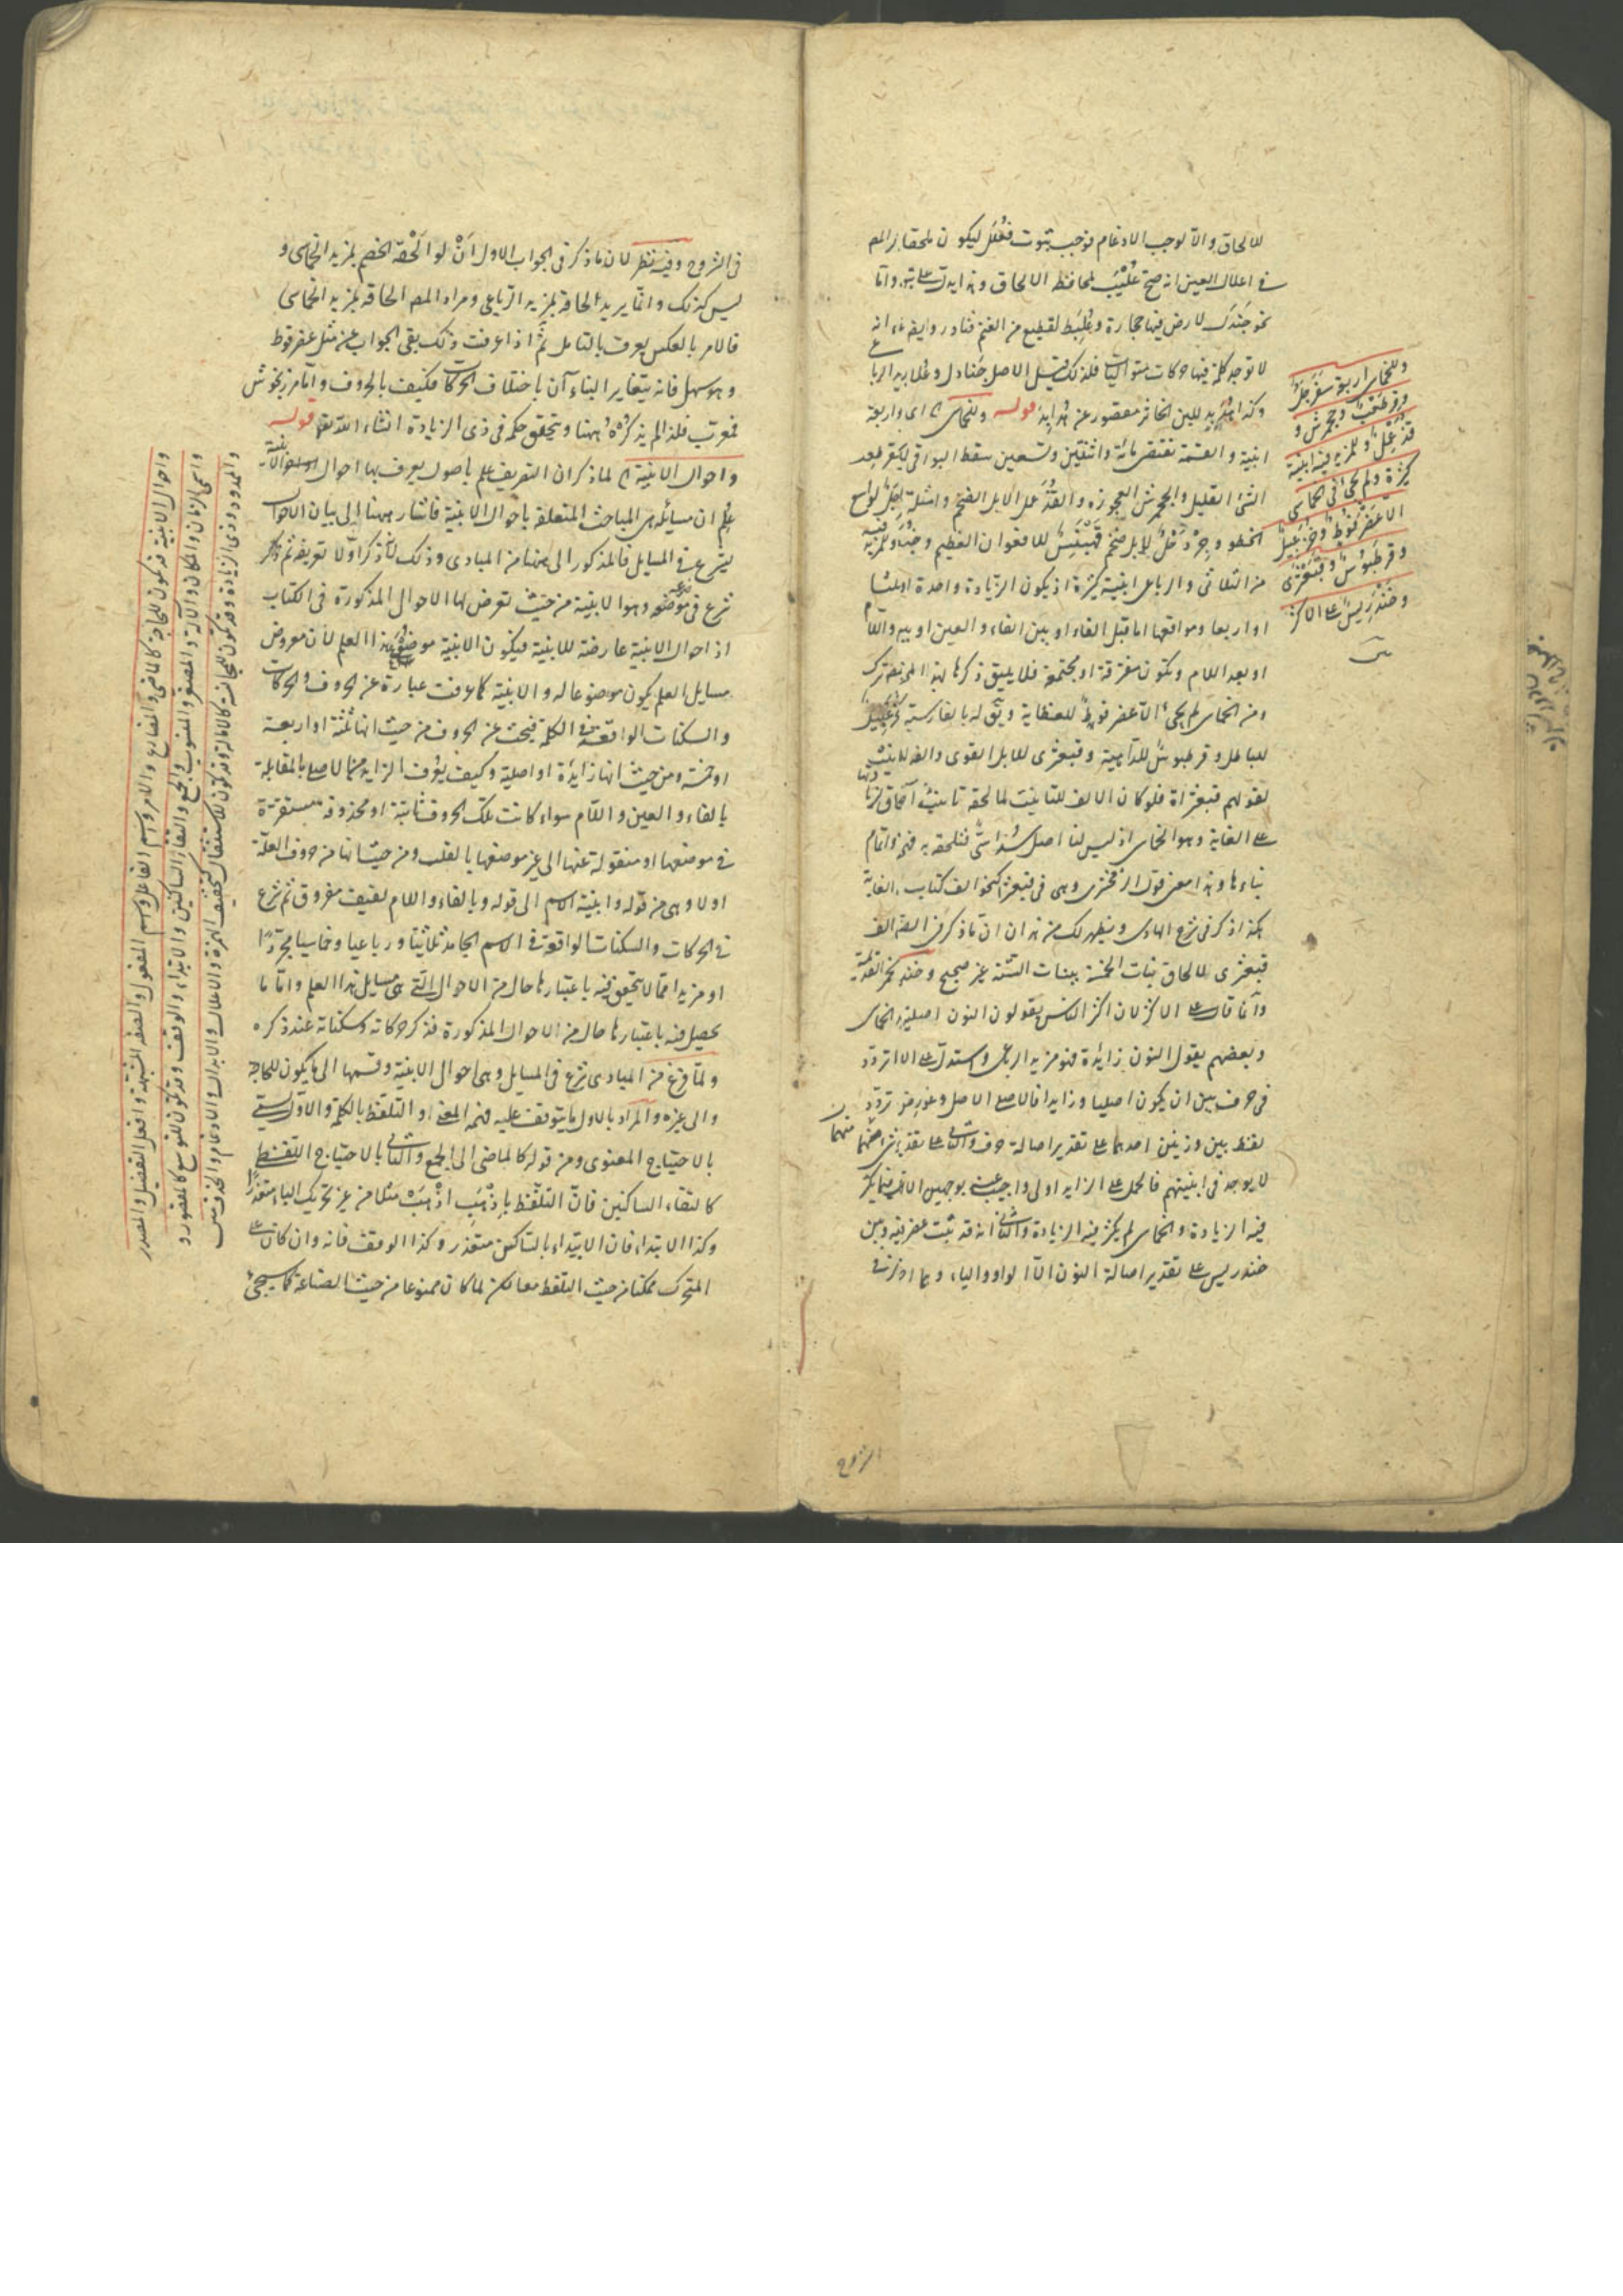 للالحاق والا لوجب الادغام فوجب ثبوت فعلل ليكون ملحقا به المص
في اعلال العين انه صح عليب لمحافظة الالحاق وهذا يدل على ثبوته واما
نحو جندل لارض فيها حجارة وعلبط لقطيع من الغنم فنادر وايضا انه
لا توجد كلمة فيها حركات متواليات فلذلك قيل الاصل جنادل وعلابط
وكذا هدبد للبن الخاثر مقصور عن هدابد قوله وللخماسي اى اربعة
ابنية والقسمة تقتضي مائة واثنتين وتسعين سقط البواقي
الشئ القليل والجحمرش العجوزة والقذعمل الابل الضخم
الخطو وجردحل للابل ضخم قهبلس للافعوان العظيم
من الثلاثي والرباعي ابنية كثيرة اذ يكون الزيادة واحدة او ثلثا
او اربعا ومواقعها اما قبل الفاء او بين الفاء والعين او بين واللام
او بعد اللام وتكون متفرقة او مجتمعة فلا يليق ذكرها بهذا المختصر
ومن الخماسي لم يجئ الا عضرفوط للعظاية ويق له بالفارسية
للباطل وقرطبوس للداهية وقبعثرى للابل القوى والفه ليست
لقولهم قبعثراة فلو كان الالف للتانيث لما لحقه تانيث آخر
على الغاية وهو الخماسي اذ ليس لنا اصل سداسي فتلحقه به فهو اتمام
بناءها وهذا معنى قول الزمخشري وهى في قبعثرى كنحو الف كتاب
هكذا ذكر في شرح الهادى ويظهر لك من هذا ان ما ذكر في الف
قبعثرى للالحاق بنات الخمسة ببنات الستة غير صحيح
وانما قال على الاكثر لان اكثر الناس يقولون النون اصلية
وبعضهم يقول النون زائدة فهو مزيد الرباعي واستدل على الاول
في حرف بين ان يكون اصليا وزايدا فالاصل
لفظ بين وزنين احدهما على تقدير اصالة حرف والثاني على تقدير
لا يوجد في ابنيتهم فالحمل على الزايد اولى واجيب عنه بوجهين
فيه الزيادة والخماسي لم يكثر فيه الزيادة والثاني انه قد ثبت
خندريس على تقدير اصالة النون الا الواو والياء
وللخماسي اربعة سفرجل
وقرطعب وجحمرش و
قذعمل وللمزيد فيه ابنية
كثيرة ولم يجئ في الخماسي
الا عضرفوط وخزعبيل
وقرطبوس وقبعثرى
وخندريس على الاكثر
في الشروح وفيه نظر لان ما ذكر في الجواب الاول ان لو الحقه الخصم بمزيد الخماسي و
ليس كذلك وانما يريد الحاقه بمزيد الرباعي ومراد المص الحاقه بمزيد الخماسي
فالامر بالعكس يعرف بالتامل ثم اذا عرفت ذلك بقى الجواب عن مثل عضرفوط
وهو سهل فانه يتغاير البناء ان باختلاف الحركات فكيف بالحروف واما مرزنجوش
فمعرب فلذا لم يذكره ههنا وتحقق حكمه في ذى الزيادة انشاء الله تعالى قوله
واحوال الابنية لما ذكر ان التصريف علم باصول يعرف بها احوال الابنية
علم ان مسائله هى المباحث المتعلقة باحوال الابنية فاشار ههنا الى بيان الابواب
ليشرع في المسايل فالمذكور الى ههنا من المبادى وذلك لانه ذكر اولا تعريفه ثم
شرع في موضوعه وهو الابنية من حيث تعرض لها الاحوال المذكورة في الكتاب
اذ احوال الابنية عارضة للابنية فيكون الابنية موضوع هذا العلم لان معروض
مسايل العلم يكون موضوعا له والابنية كما عرفت عبارة عن الحروف والحركات
والسكنات الواقعة في الكلمة فبحث عن الحروف من حيث انها ثلثة او اربعة
او خمسة ومن حيث انها زايدة او اصلية وكيف يعرف الزايد من الاصلي بالمقابلة
بالفاء والعين واللام سواء كانت تلك الحروف ثابتة او محذوفة مستقرة
في موضعها او منقولة عنها الى غير موضعها بالقلب ومن حيث انها من حروف العلة
اولا وهى من قوله وابنية الاسم الى قوله وبالفاء واللام لفيف مفروق ثم شرع
في الحركات والسكنات الواقعة في الاسم الجامد ثلاثيا ورباعيا وخماسيا مجردا
او مزيدا مما لا يتحقق فيه باعتبارها حال من الاحوال التي هى مسايل هذا العلم واما ما
يحصل فيه باعتبارها حال من الاحوال المذكورة فذكر حركاته وسكناته عند ذكره
ولما فرغ من المبادى شرع في المسايل وهى احوال الابنية وقسمها الى ما يكون للحاجة
والى غيره والمراد بالاول ما يتوقف عليه فهم المعنى او التلفظ بالكلمة والاول
بالاحتياج المعنوى ومن قوله كالماضى الى الجمع والثاني بالاحتياج اللفظي
كالتقاء الساكنين فان التلفظ باذهب اذهب مثلا من غير تحريك الباء متعذر
وكذا الابتداء فان الابتداء بالساكن متعذر وكذا الوقف فانه وان كان على
المتحرك ممكنا من حيث التلفظ معا لكن لما كان ممنوعا من حيث الصناعة كما سيجئ
واحوال الابنية قد تكون للحاجة كالماضي والمضارع والامر واسم الفاعل واسم المفعول والصفة المشبهة وافعل التفضيل والمصدر
واسمى الزمان والمكان والآلة والمصغر والمنسوب والجمع والتقاء الساكنين والابتداء والوقف وقد تكون للتوسع كالمقصور و
والممدود وذى الزيادة وقد تكون للمجانسة كالامالة وقد تكون للاستثقال كتخفيف الهمزة والاعلال والابدال والادغام والحذف
الشروح